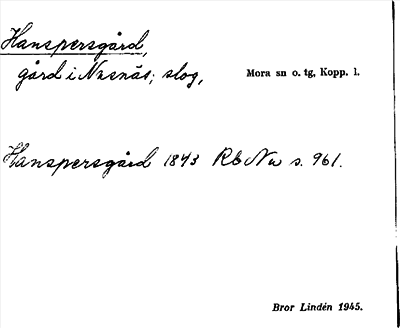 Hanspersgård,
gård i Nusnäs; slog,
Mora sn o. tg, Kopp. l.
Hanspersgård 1843 RbNu s. 961.
Bror Lindén 1945.